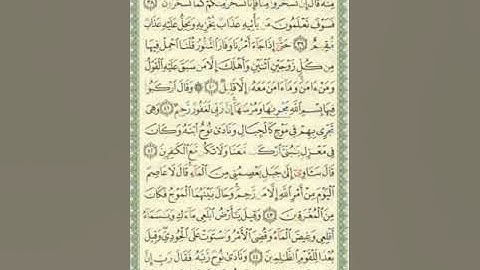 مِنْهُ قَالَ إِن تَسْخَرُوا۟ مِنَّا فَإِنَّا نَسْخَرُ مِنكُمْ كَمَا تَسْخَرُونَ ٣٨
فَسَوْفَ تَعْلَمُونَ مَن يَأْتِيهِ عَذَابٌ يُخْزِيهِ وَيَحِلُّ عَلَيْهِ عَذَابٌ
مُّقِيمٌ ٣٩ حَتَّىٰٓ إِذَا جَآءَ أَمْرُنَا وَفَارَ ٱلتَّنُّورُ قُلْنَا ٱحْمِلْ فِيهَا
مِن كُلٍّ زَوْجَيْنِ ٱثْنَيْنِ وَأَهْلَكَ إِلَّا مَن سَبَقَ عَلَيْهِ ٱلْقَوْلُ
وَمَنْ ءَامَنَ وَمَآ ءَامَنَ مَعَهُۥٓ إِلَّا قَلِيلٌ ٤٠ وَقَالَ ٱرْكَبُوا۟
فِيهَا بِسْمِ ٱللَّهِ مَجْر۪ىٰهَا وَمُرْسَىٰهَآ إِنَّ رَبِّى لَغَفُورٌ رَّحِيمٌ ٤١ وَهِىَ
تَجْرِى بِهِمْ فِى مَوْجٍ كَٱلْجِبَالِ وَنَادَىٰ نُوحٌ ٱبْنَهُۥ وَكَانَ
فِى مَعْزِلٍ يَٰبُنَىَّ ٱرْكَب مَّعَنَا وَلَا تَكُن مَّعَ ٱلْكَٰفِرِينَ ٤٢
قَالَ سَـَٔاوِىٓ إِلَىٰ جَبَلٍ يَعْصِمُنِى مِنَ ٱلْمَآءِ قَالَ لَا عَاصِمَ
ٱلْيَوْمَ مِنْ أَمْرِ ٱللَّهِ إِلَّا مَن رَّحِمَ وَحَالَ بَيْنَهُمَا ٱلْمَوْجُ فَكَانَ
مِنَ ٱلْمُغْرَقِينَ ٤٣ وَقِيلَ يَٰٓأَرْضُ ٱبْلَعِى مَآءَكِ وَيَٰسَمَآءُ
أَقْلِعِى وَغِيضَ ٱلْمَآءُ وَقُضِىَ ٱلْأَمْرُ وَٱسْتَوَتْ عَلَى ٱلْجُودِىِّ وَقِيلَ
بُعْدًا لِّلْقَوْمِ ٱلظَّٰلِمِينَ ٤٤ وَنَادَىٰ نُوحٌ رَّبَّهُۥ فَقَالَ رَبِّ إِنَّ